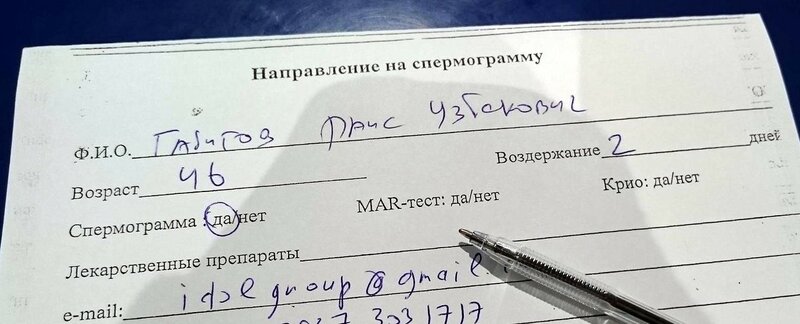 Направление на спермограмму
Ф.И.О. Габитов Раис Узбекович
Возраст 46 Воздержание 2 дней
Спермограмма : да/нет MAR-тест: да/нет Крио: да/нет
Лекарственные препараты
e-mail: idel group@gmail.
303 1717